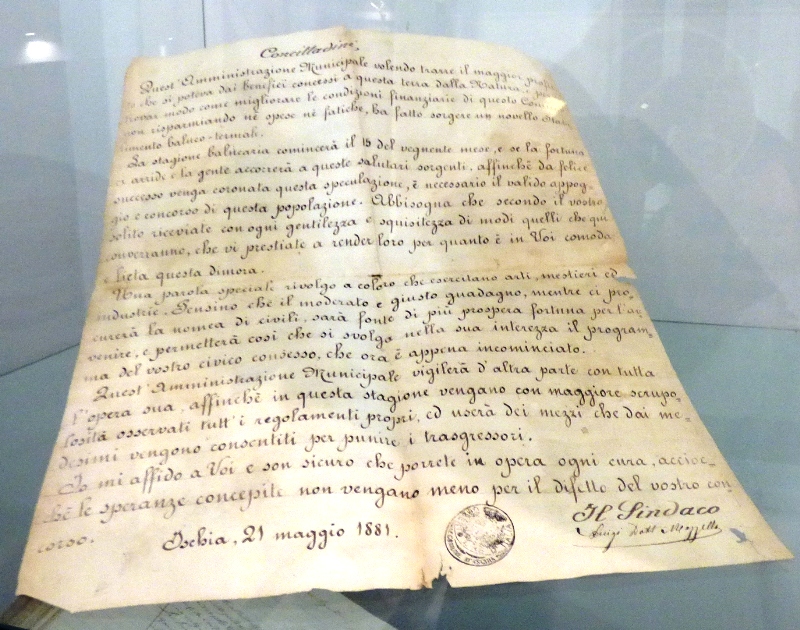 Concittadini,
Quest'Amministrazione Municipale volendo trarre il maggior profit-
to che si poteva dai benefici concessi a questa terra dalla Natura, e per
trovar modo come migliorare le condizioni finanziarie di questo Comune
non risparmiando nè spese nè fatiche, ha fatto sorgere un novello Stabi-
limento balneo-termali.
La stagione balnearia comincerà il 15 del vegnente mese, e se la fortuna
ci arride e la gente accorrerà a queste salutari sorgenti, affinchè da felice
successo venga coronata questa speculazione, è necessario il valido appog-
gio e concorso di questa popolazione. Abbisogna che secondo il vostro
solito riceviate con ogni gentilezza e squisitezza di modi quelli che qui
converranno, che vi prestiate a render loro per quanto è in Voi comoda
e lieta questa dimora.
Una parola speciale rivolgo a coloro che esercitano arti, mestieri ed
industrie. Pensino che il moderato e giusto guadagno, mentre ci pro-
curerà la nomea di civili, sarà fonte di più prospera fortuna per l'av-
venire, e permetterà così che si svolga nella sua interezza il program-
ma del vostro civico consesso, che ora è appena incominciato.
Quest'Amministrazione Municipale vigilerà d'altra parte con tutta
l'opera sua, affinchè in questa stagione vengano con maggiore scrupo-
losità osservati tutt'i regolamenti propri, ed userà dei mezzi che dai me-
desimi vengono consentiti per punire i trasgressori.
Io mi affido a Voi e son sicuro che porrete in opera ogni cura, accioc-
chè le speranze concepite non vengano meno per il difetto del vostro con-
corso.
Ischia, 21 maggio 1881.
Il Sindaco
Luigi Dott. Mazzella